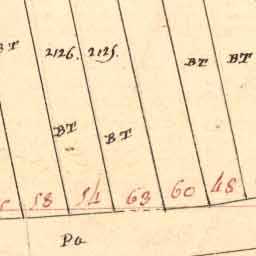 BT 2126. 2125. BT BT
BT BT
58 54 63 60 48
Pa